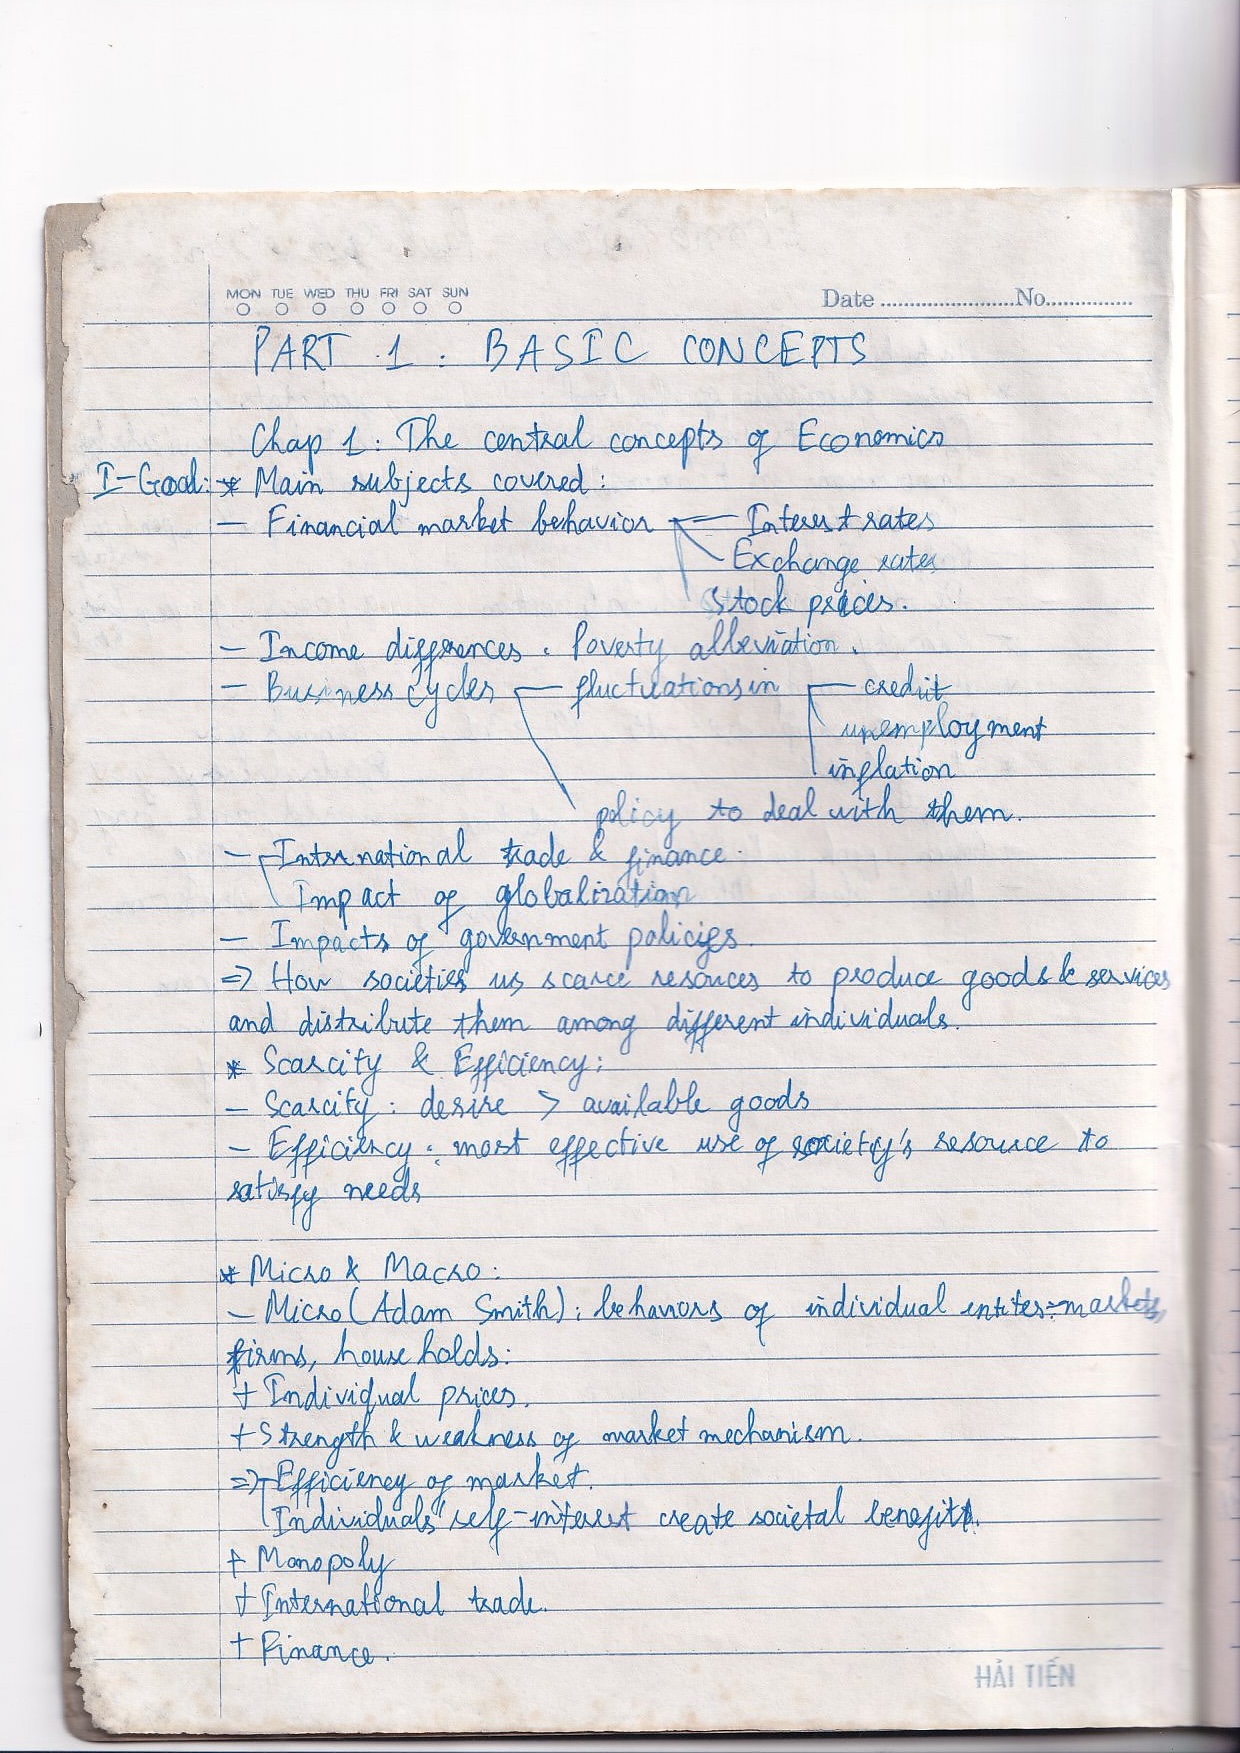 MON TUE WED THU FRI SAT SUN
Date ........................No...............
PART 1 : BASIC CONCEPTS
Chap 1: The central concepts of Economics
I-Goal: * Main subjects covered:
- Financial market behavior - Interest rates
Exchange rates
Stock prices.
- Income differences. Poverty alleviation.
- Business cycles - fluctuations in - credit
unemployment
inflation
policy to deal with them.
- International trade & finance.
Impact of globalization
- Impacts of government policies.
=> How societies us scarce resources to produce goods & services
and distribute them among different individuals.
* Scarcity & Efficiency:
- Scarcity: desire > available goods
- Efficiency: most effective use of society's resource to
satisfy needs
* Micro & Macro:
- Micro (Adam Smith): behaviors of individual entites: markets,
firms, house holds:
+ Individual prices.
+ Strength & weakness of market mechanism.
=> Efficiency of market.
Individuals' self-interest create societal benefits.
+ Monopoly
+ International trade.
+ Finance.
HẢI TIẾN